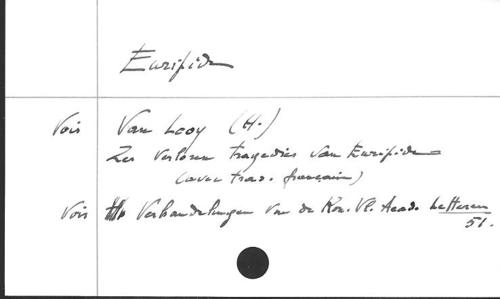 Euripide
Voir Van Looy (H.)
Zes verloren tragedies van Euripides
(avec trad. française)
Voir Verhandelingen van de Kon. Vl. Acad. Letteren
51.